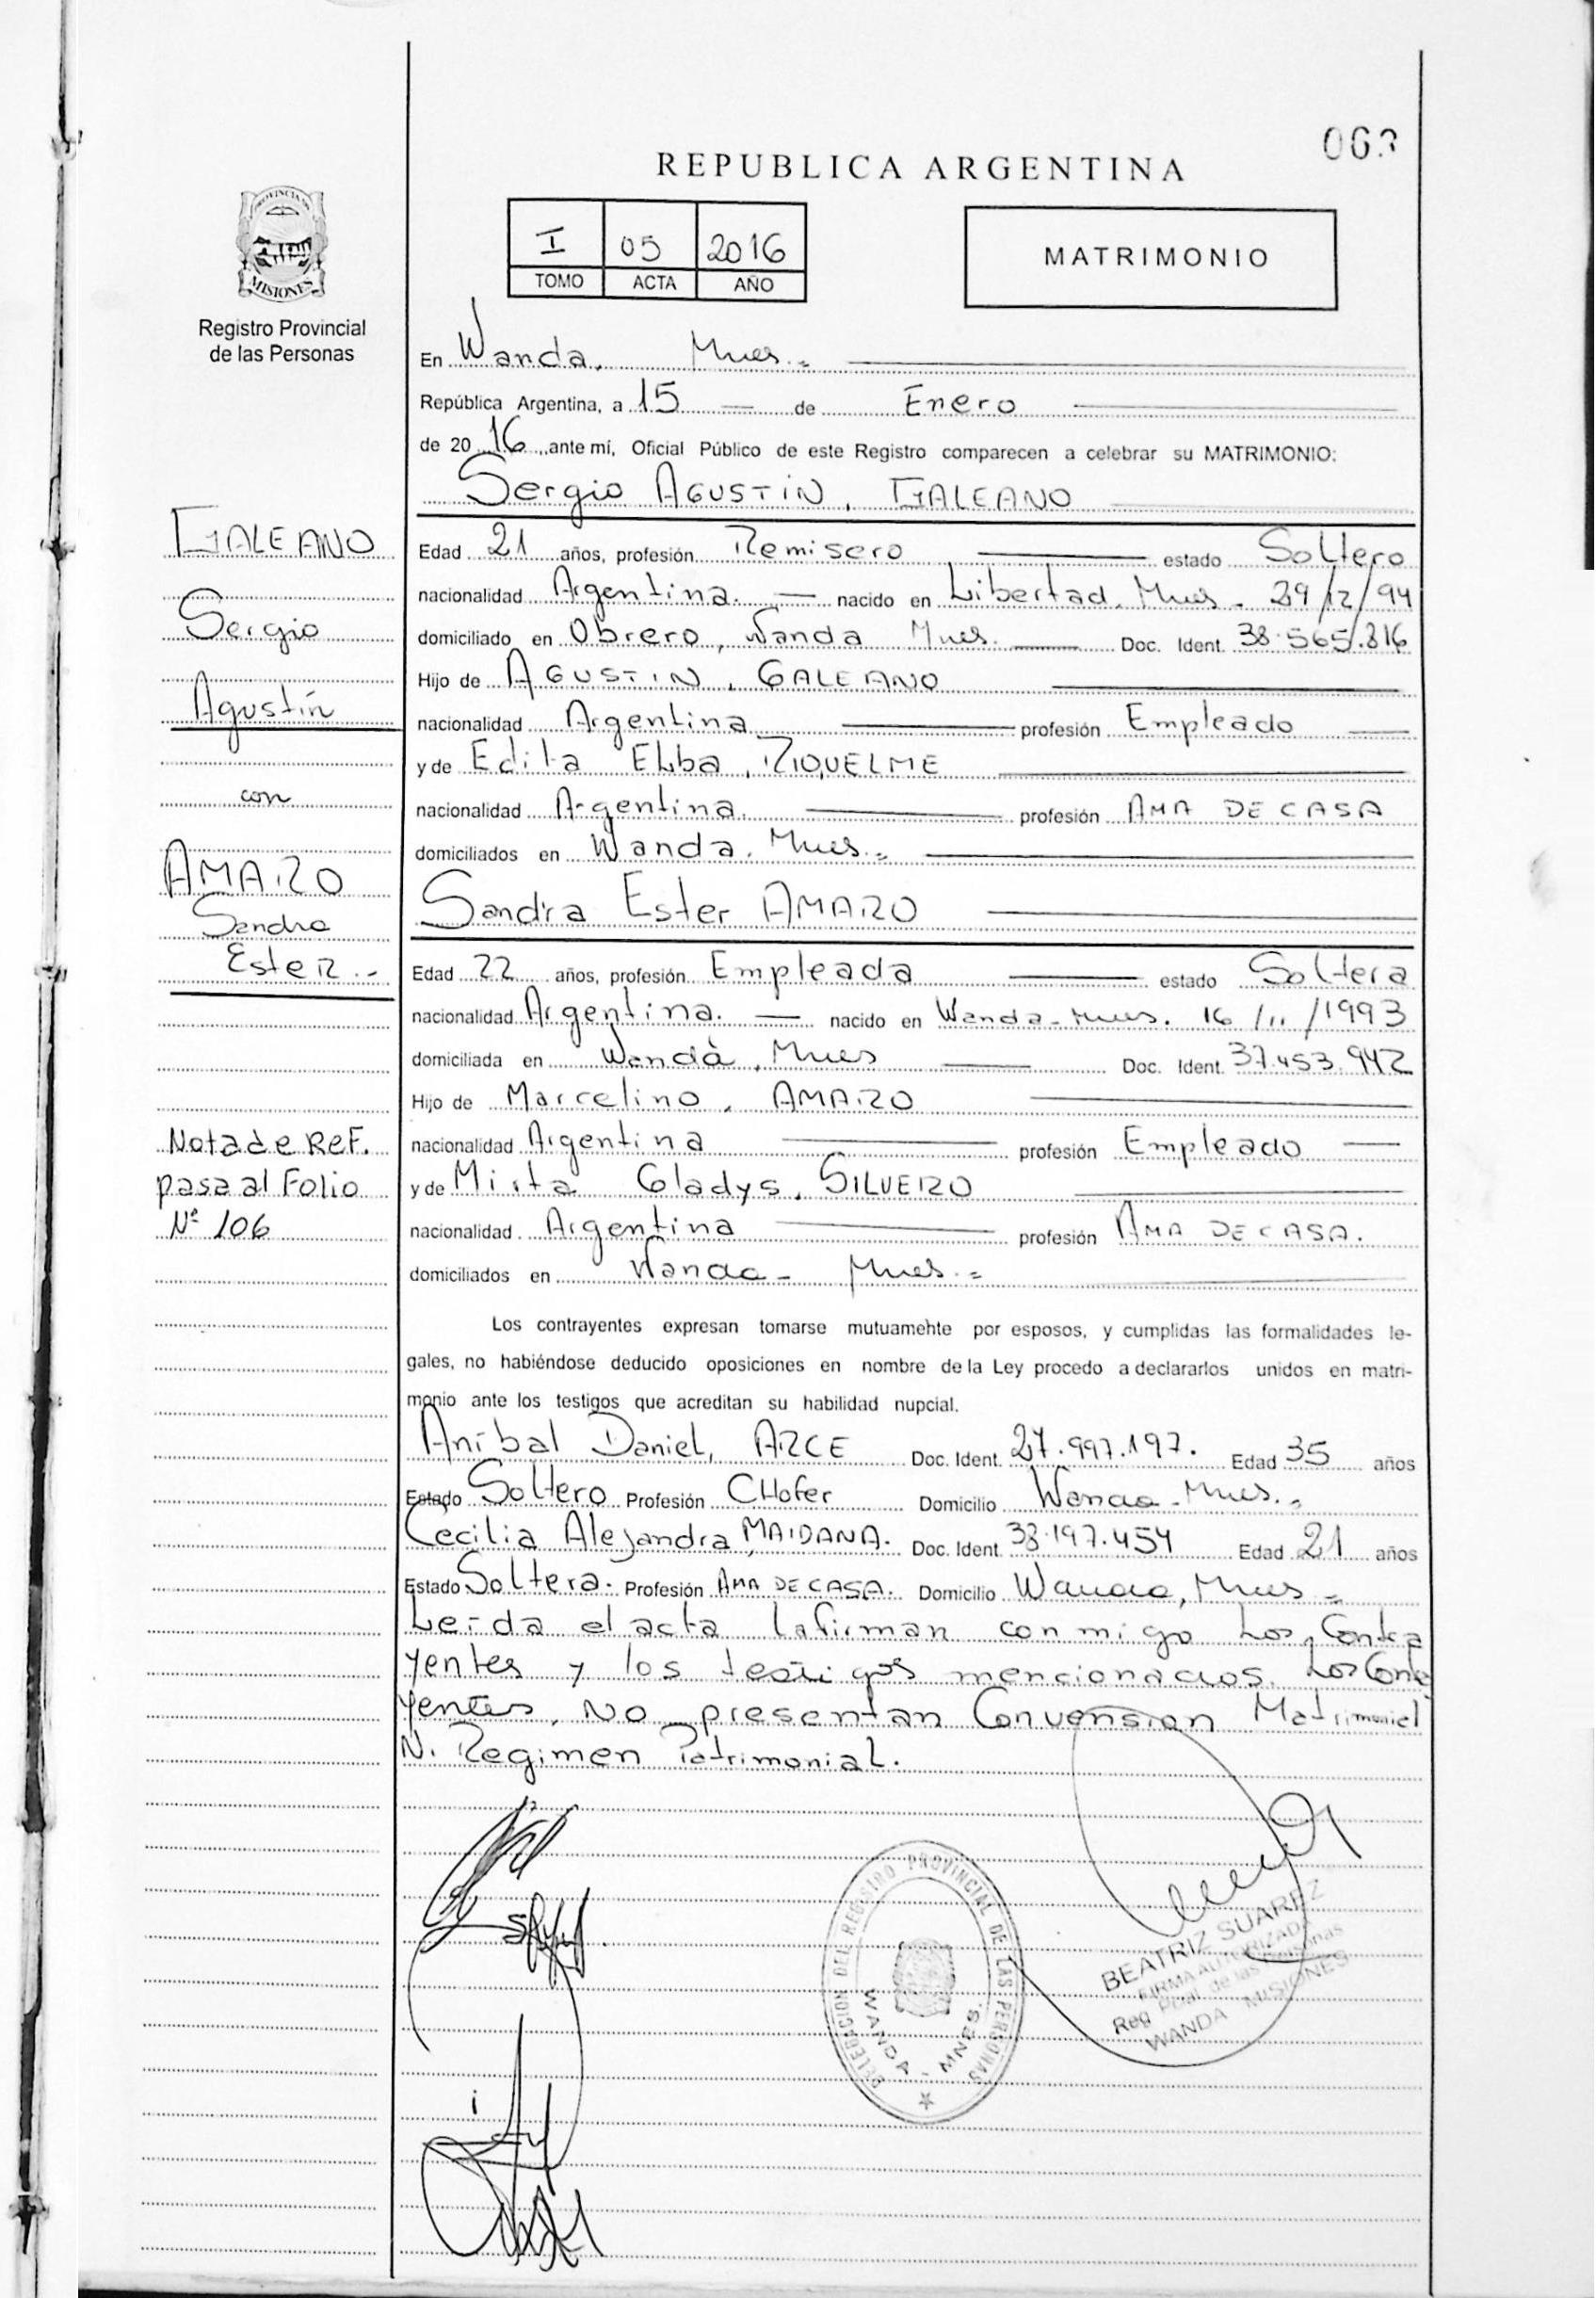 063
REPUBLICA ARGENTINA
PROVINCIA DE
MISIONES
Registro Provincial
de las Personas
I 05 2016
TOMO ACTA AÑO
MATRIMONIO
En Wanda, Mnes.=
República Argentina, a 15 — de Enero
de 2016 ante mí, Oficial Público de este Registro comparecen a celebrar su MATRIMONIO:
Sergio AGUSTIN, GALEANO
GALEANO
Sergio
Agustín
con
AMARO
Sandra
Ester.-
Nota de Ref.
pasa al Folio
Nº 106
Edad 21 años, profesión Remisero estado Soltero
nacionalidad Argentina. — nacido en Libertad, Mnes - 29/12/94
domiciliado en Obrero, Wanda Mnes. Doc. Ident. 38.565.816
Hijo de AGUSTIN, GALEANO
nacionalidad Argentina profesión Empleado
y de Edita Elba, RIQUELME
nacionalidad Argentina. profesión AMA DE CASA
domiciliados en Wanda, Mnes.=
Sandra Ester AMARO
Edad 22 años, profesión Empleada estado Soltera
nacionalidad Argentina. — nacido en Wanda-Mnes. 16/11/1993
domiciliada en Wanda, Mnes Doc. Ident. 37.453.942
Hijo de Marcelino, AMARO
nacionalidad Argentina profesión Empleado
y de Mirta Gladys, SILVERO
nacionalidad Argentina profesión AMA DE CASA.
domiciliados en Wanda - Mnes.=
Los contrayentes expresan tomarse mutuamente por esposos, y cumplidas las formalidades le-
gales, no habiéndose deducido oposiciones en nombre de la Ley procedo a declararlos unidos en matri-
monio ante los testigos que acreditan su habilidad nupcial.
Aníbal Daniel, ARCE Doc. Ident. 27.997.197. Edad 35 años
Estado Soltero Profesión CHofer Domicilio Wanda-Mnes.=
Cecilia Alejandra MAIDANA. Doc. Ident. 38.197.454 Edad 21 años
Estado Soltera. Profesión AMA DE CASA. Domicilio Wanda, Mnes =
Leida el acta la firman conmigo Los Contra
yentes y los testigos mencionados. Los Contra
yentes, No presentan Convension Matrimonial
Ni Regimen Patrimonial.
DELEGACION DEL REGISTRO PROVINCIAL DE LAS PERSONAS
WANDA - MNES.
BEATRIZ SUAREZ
FIRMA AUTORIZADA
Reg. Pcial de las Personas
WANDA MISIONES